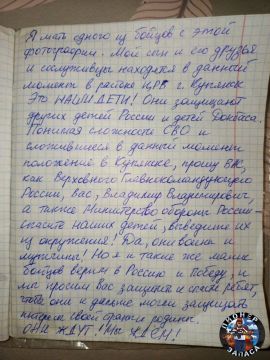 Я мать одного из бойцов с этой
фотографии. Мой сын и его друзья
и сослуживцы находятся в данный
момент в районе ЦРБ г. Купянск
Это НАШИ ДЕТИ! Они защищают
других детей России и детей Донбаса.
Понимая сложность СВО и
сложившееся в данный момент
положение в Купянске, прошу ВАС,
как Верховного Главнокомандующего
России, Вас, Владимир Владимирович,
а также Министерство обороны России -
спасите наших детей, выведите их
из окружения! Да, они воины и
мужчины! Но я и такие же мамы
бойцов верим в Россию и Победу, и
мы просим вас защитить и спасти ребят,
чтобы они и дальше могли защищать
интересы своей родины
ОНИ ЖДУТ! МЫ ЖДЕМ!
ПИОНЕР
ЗАПАСА